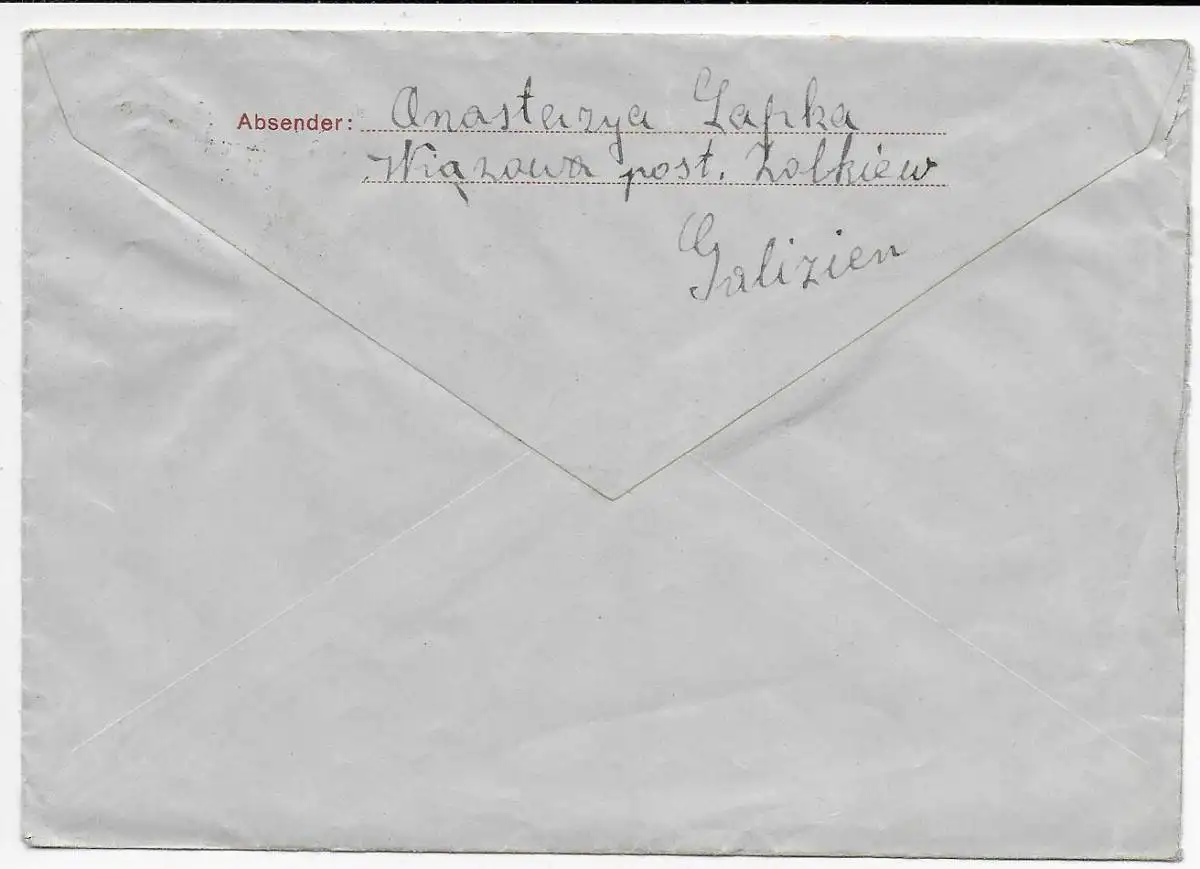 Absender: Anastazya Łapka
Wiązowa post. Zolkiew
Galizien